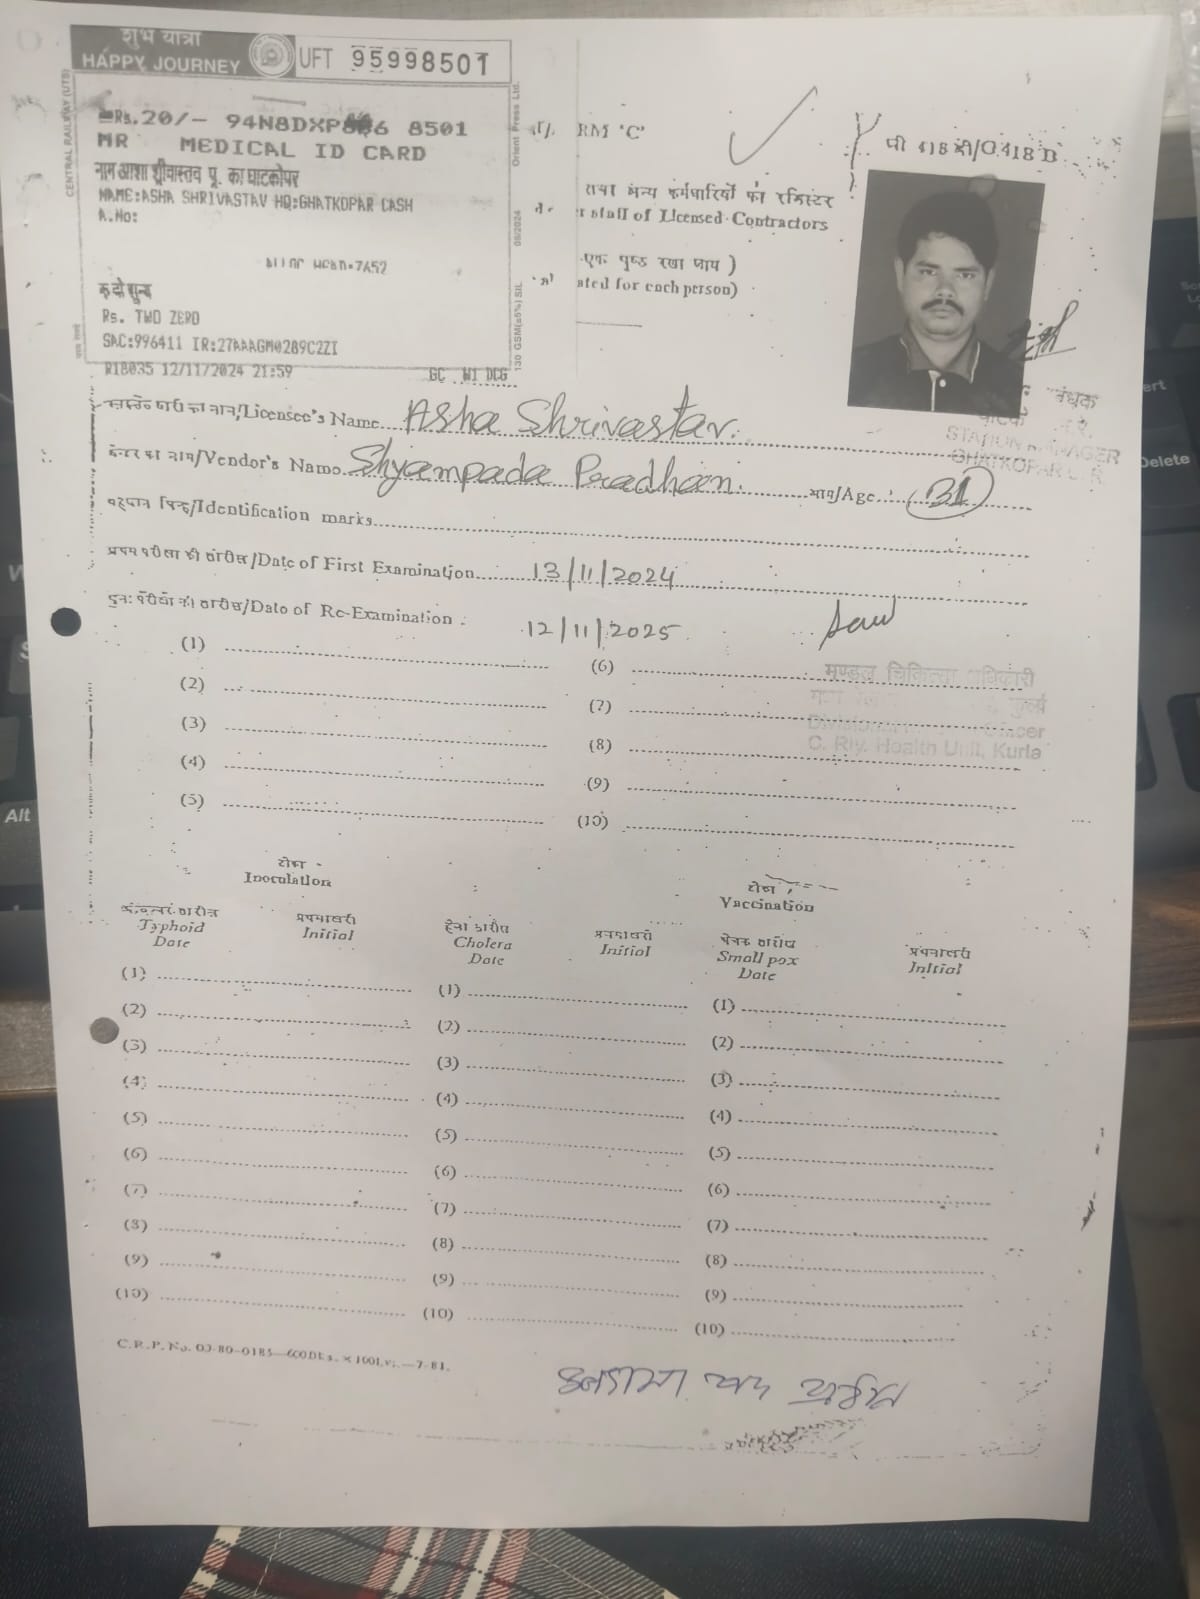 शुभ यात्रा
HAPPY JOURNEY
UFT 95998501
CENTRAL RAILWAY (UTS)
Orient Press Ltd.
08/2024
130 GSM(±5%) SIL
Rs.20/- 94N8DXP 6 8501
MR MEDICAL ID CARD
नाम आशा श्रीवास्तव पू. का घाटकोपर
NAME:ASHA SHRIVASTAV HQ:GHATKOPAR CASH
A.No:
ALLOC HEAD-7652
रू दो शून्य
Rs. TWO ZERO
SAC:996411 IR:27AAAGM0289C2ZI
R18035 12/11/2024 21:59
RM 'C'
जी 418 डी/G.418 D
तथा अन्य कर्मचारियों का रजिस्टर
r staff of Licensed Contractors
एक पृष्ठ रखा जाय )
ated for each person)
STATION MANAGER
GHATKOPAR C.R.
का नाम/Licensee's Name Asha Shrivastav.
वेन्डर का नाम/Vendor's Name Shyampada Pradhan. आयु/Age : 31
पहचान चिन्ह/Identification marks
प्रथम परीक्षा की तारीख/Date of First Examination 13/11/2024
पुनः परीक्षा की तारीख/Date of Re-Examination : 12/11/2025
(1) (6)
(2) (7)
(3) (8)
(4) (9)
(5) (10)
मण्डल चिकित्सा अधिकारी
Divisional Officer
C. Rly. Health Unit, Kurla
टीका
Inoculation
टीका
Vaccination
तारीख
Typhoid
Date
प्रथमाक्षरी
Initial
हैजा तारीख
Cholera
Date
प्रथमाक्षरी
Initial
चेचक तारीख
Small pox
Date
प्रथमाक्षरी
Initial
(1) (1) (1)
(2) (2) (2)
(3) (3) (3)
(4) (4) (4)
(5) (5) (5)
(6) (6) (6)
(7) (7) (7)
(8) (8) (8)
(9) (9) (9)
(10) (10) (10)
C.R.P. No.